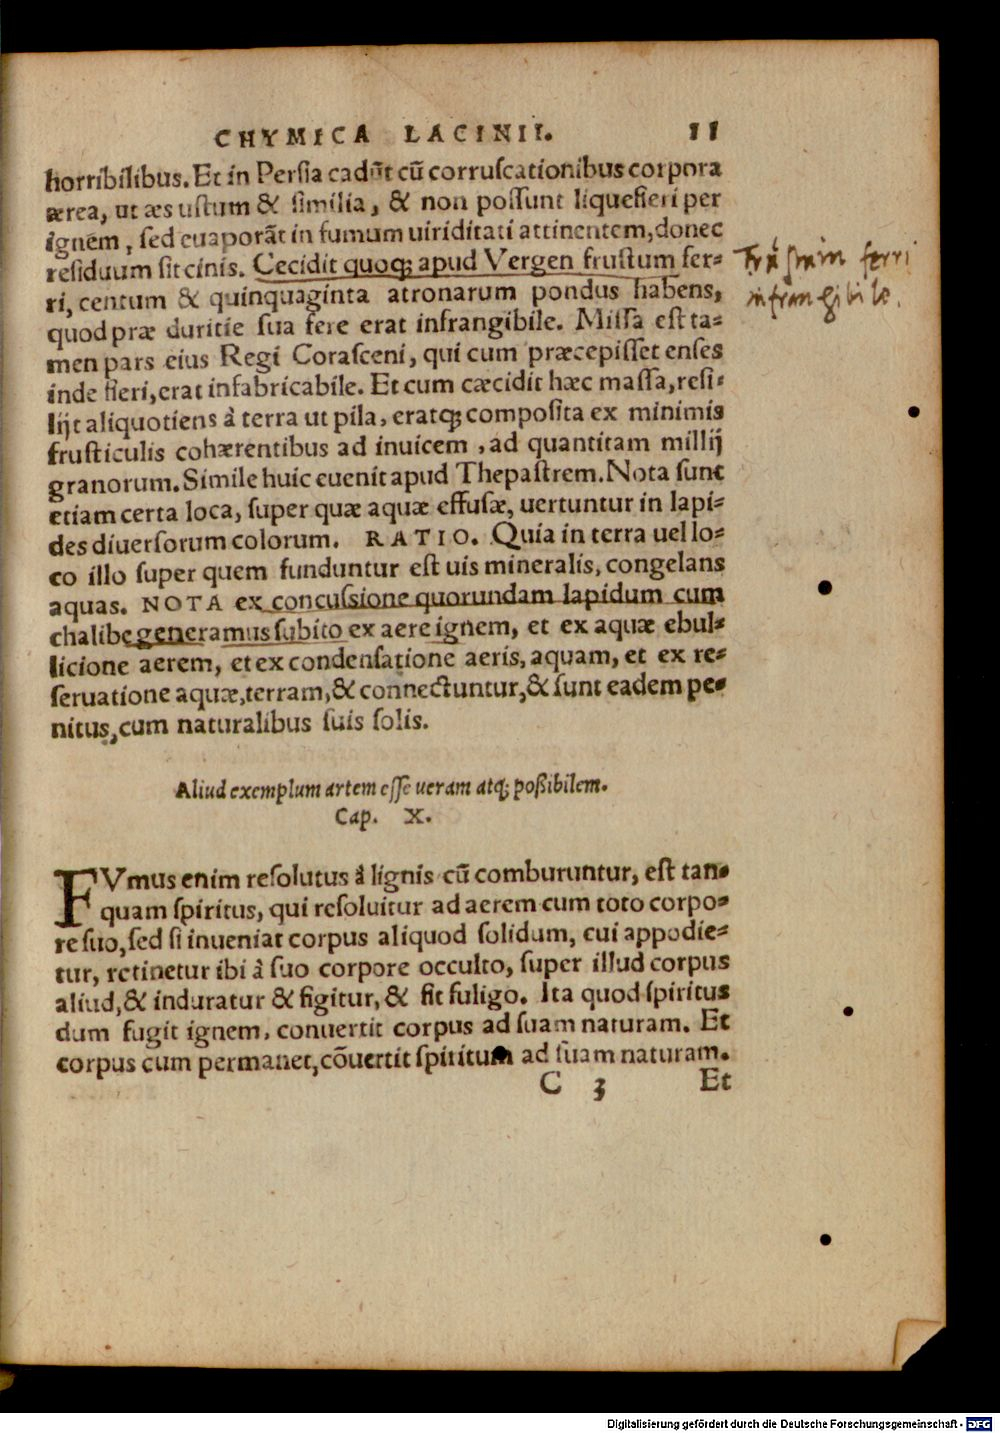 CHYMICA LACINII. 11
horribilibus. Et in Persia cadũt cũ corruscationibus corpora
ærea, ut æs ustum & similia, & non possunt liquefieri per
ignem, sed euaporãt in fumum uiriditati attinentem, donec
residuum sit cinis. Cecidit quoq; apud Vergen frustum fer-
ri, centum & quinquaginta atronarum pondus habens,
quod præ duritie sua fere erat infrangibile. Missa est ta-
men pars eius Regi Corasceni, qui cum præcepisset enses
inde fieri, erat infabricabile. Et cum cæcidit hæc massa, resi-
lijt aliquotiens à terra ut pila, eratq; composita ex minimis
frusticulis cohærentibus ad inuicem, ad quantitam millij
granorum. Simile huic euenit apud Thepastrem. Nota sunt
etiam certa loca, super quæ aquæ effusæ, uertuntur in lapi-
des diuersorum colorum. RATIO. Quia in terra uel lo-
co illo super quem funduntur est uis mineralis, congelans
aquas. NOTA ex concussione quorundam lapidum cum
chalibe generamus subito ex aere ignem, et ex aquæ ebul-
licione aerem, et ex condensatione aeris, aquam, et ex re-
seruatione aquæ, terram, & connectuntur, & sunt eadem pe-
nitus, cum naturalibus suis solis.
ferri
infrangibile.
Aliud exemplum artem esse ueram atq; poßibilem.
Cap. X.
FVmus enim resolutus à lignis cũ comburuntur, est tan-
quam spiritus, qui resoluitur ad aerem cum toto corpo-
re suo, sed si inueniat corpus aliquod solidum, cui appodie-
tur, retinetur ibi à suo corpore occulto, super illud corpus
aliud, & induratur & figitur, & fit fuligo. Ita quod spiritus
dum fugit ignem, conuertit corpus ad suam naturam. Et
corpus cum permanet, cõuertit spiritum ad suam naturam.
C 3 Et
Digitalisierung gefördert durch die Deutsche Forschungsgemeinschaft - DFG